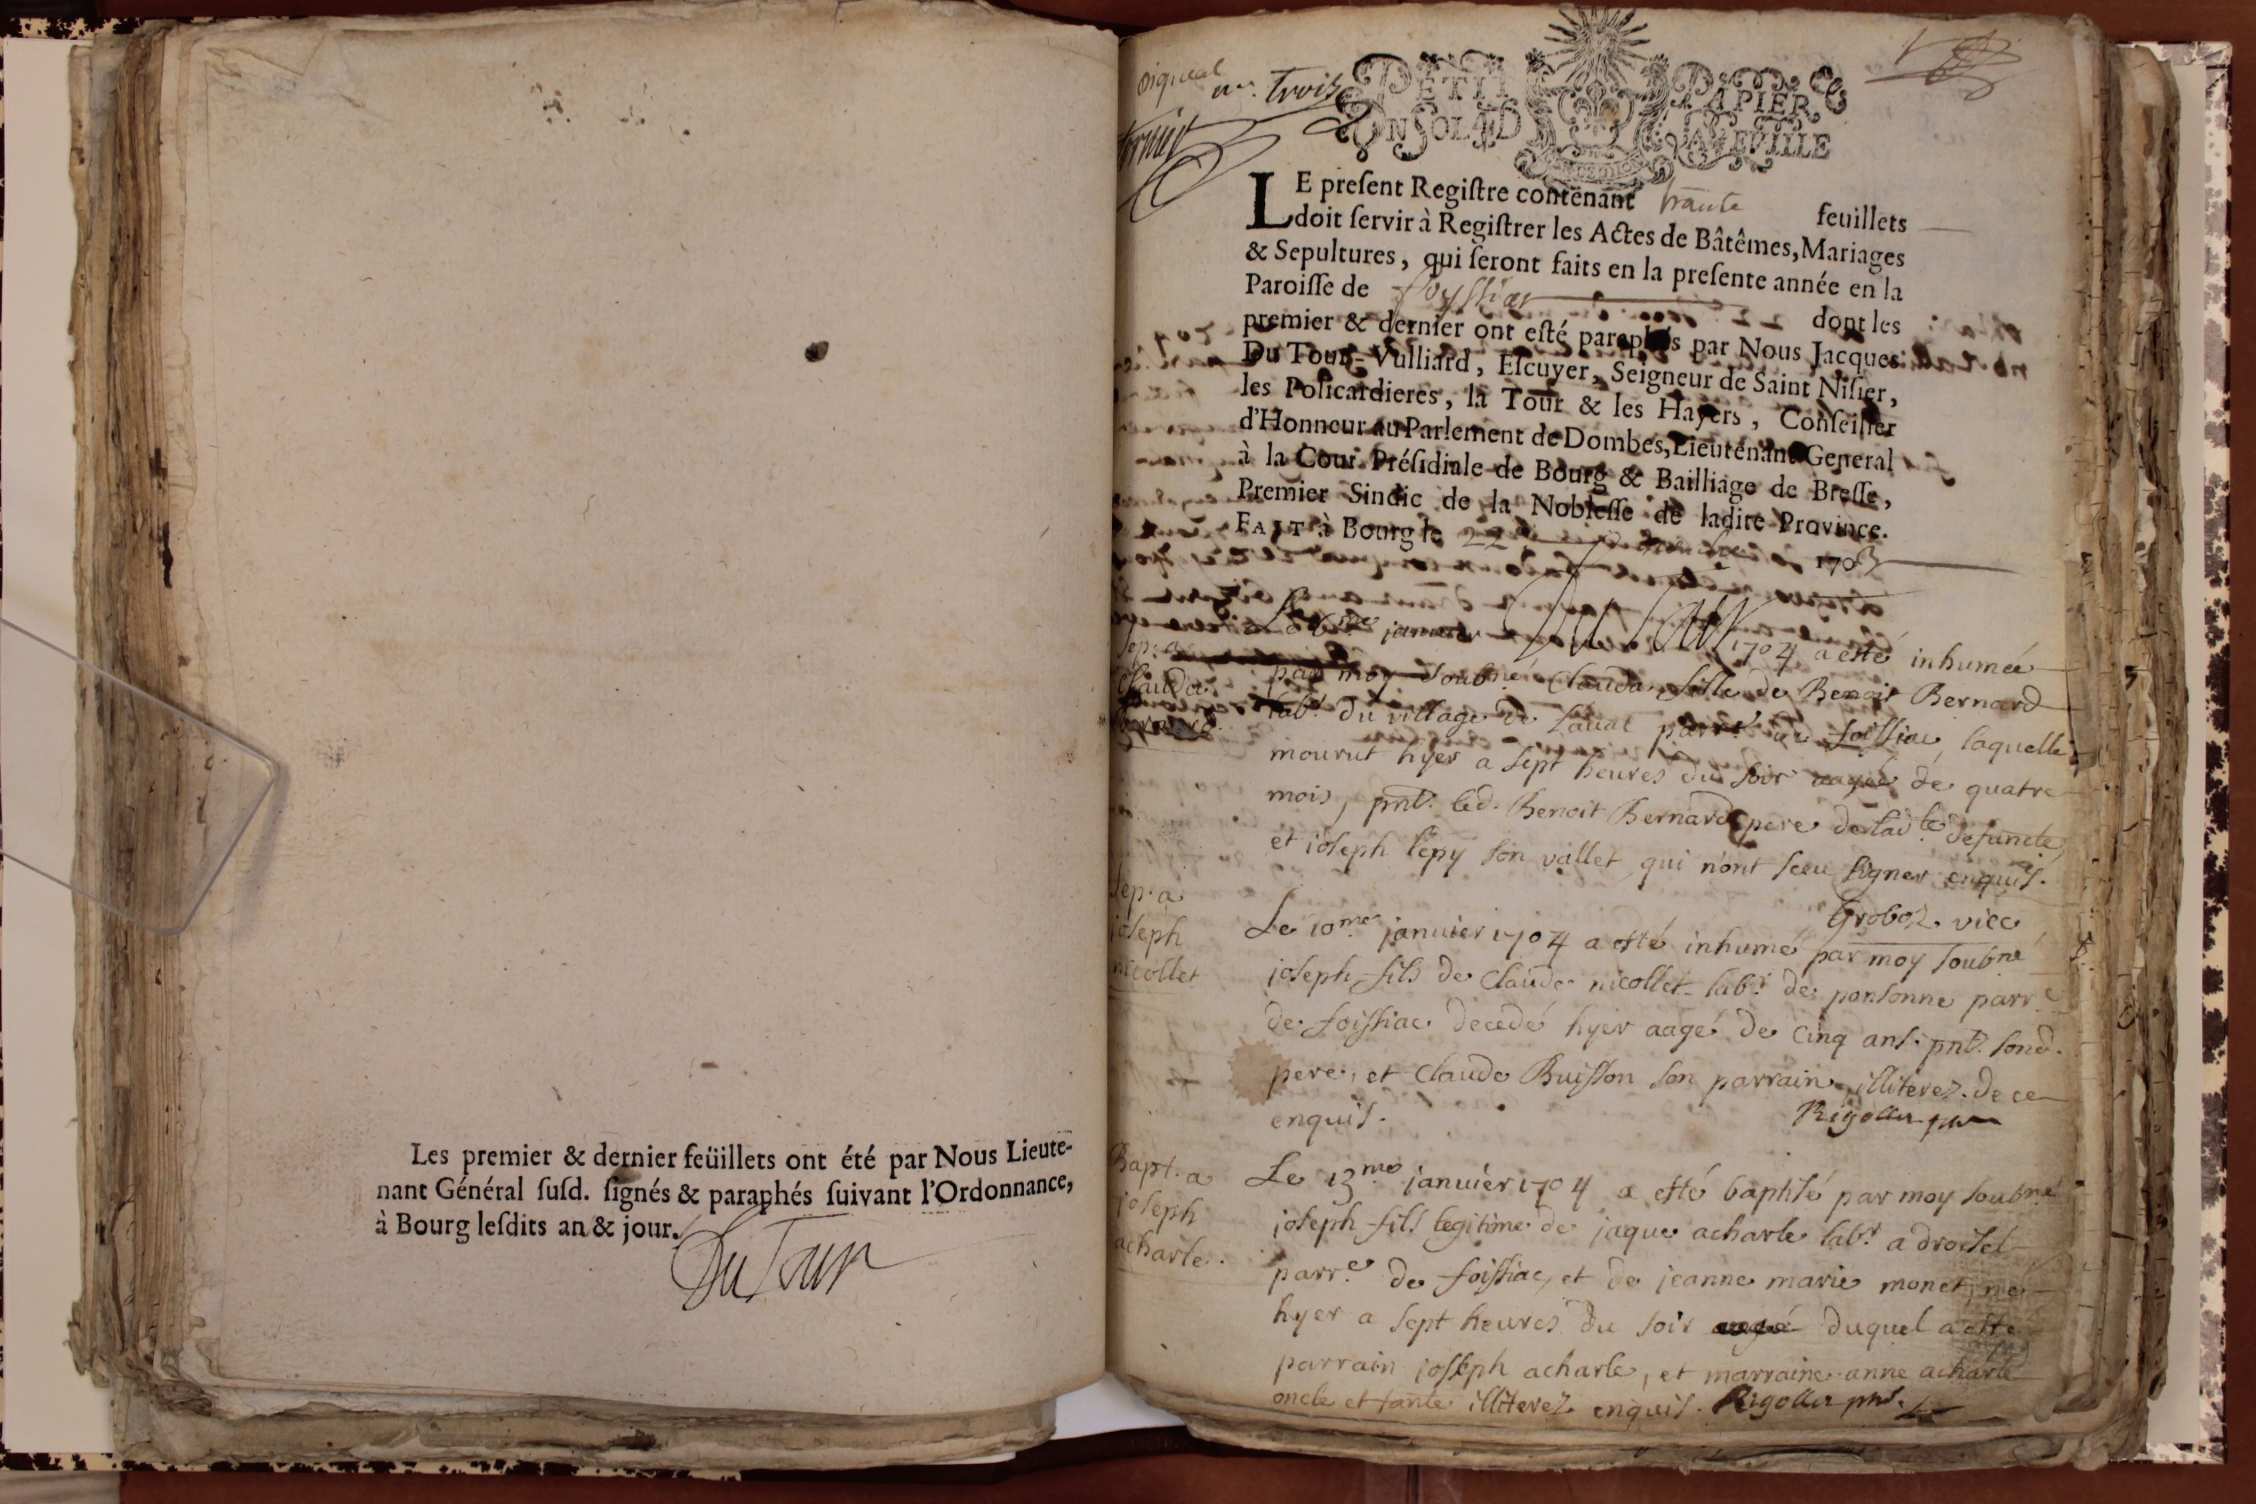 Les premier & dernier feüillets ont été par Nous Lieute-
nant Général ſuſd. ſignés & paraphés ſuivant l'Ordonnance,
à Bourg leſdits an & jour.
Du Tour
trois
PETIT PAPIER
UN SOL 4 D LA FEVILLE
LE preſent Regiſtre contenant trante feuillets
doit ſervir à Regiſtrer les Actes de Bâtêmes, Mariages
& Sepultures, qui ſeront faits en la preſente année en la
Paroiſſe de foyssiat dont les
premier & dernier ont eſté paraphés par Nous Jacques
Du Tour-Vulliard, Eſcuyer, Seigneur de Saint Niſier,
les Policardieres, la Tour & les Hayers, Conſeiller
d'Honneur au Parlement de Dombes, Lieutenant General
à la Cour Préſidiale de Bourg & Bailliage de Breſſe,
Premier Sindic de la Nobleſſe de ladite Province.
FAIT à Bourg le 22 1703
Du Tour
Sep. a
Clauda
Bernard.
Le 6me januier 1704 a esté inhumée
par moy soubné Clauda fille de Benoit Bernard
labr. du village de laual parre de foissiac, laquelle
mourut hyer a sept heures du soir aagée de quatre
mois, pnt. led. Benoit Bernard pere de ladte defuncte,
et ioseph pepy son vallet qui n'ont sceu signer enquis.
Groboz vicc
Sep. a
joseph
nicollet
Le 10me januier 1704 a esté inhumé par moy soubné
joseph fils de Claude nicollet labr de ponsonne parre
de foissiac decedé hyer aagé de cinq ans pnt. sond.
pere, et Claude Buisson son parrain illiterez de ce
enquis.
Rigollet
Bapt. a
joseph
acharle.
Le 13me januier 1704 a esté baptisé par moy soubné
joseph fils legitime de jaque acharle labr a droisel
parre de foissiac, et de jeanne marie monet, né
hyer a sept heures du soir aagé duquel a esté
parrain joseph acharle, et marraine anne acharle
oncle et tante illiterez enquis. Rigollet